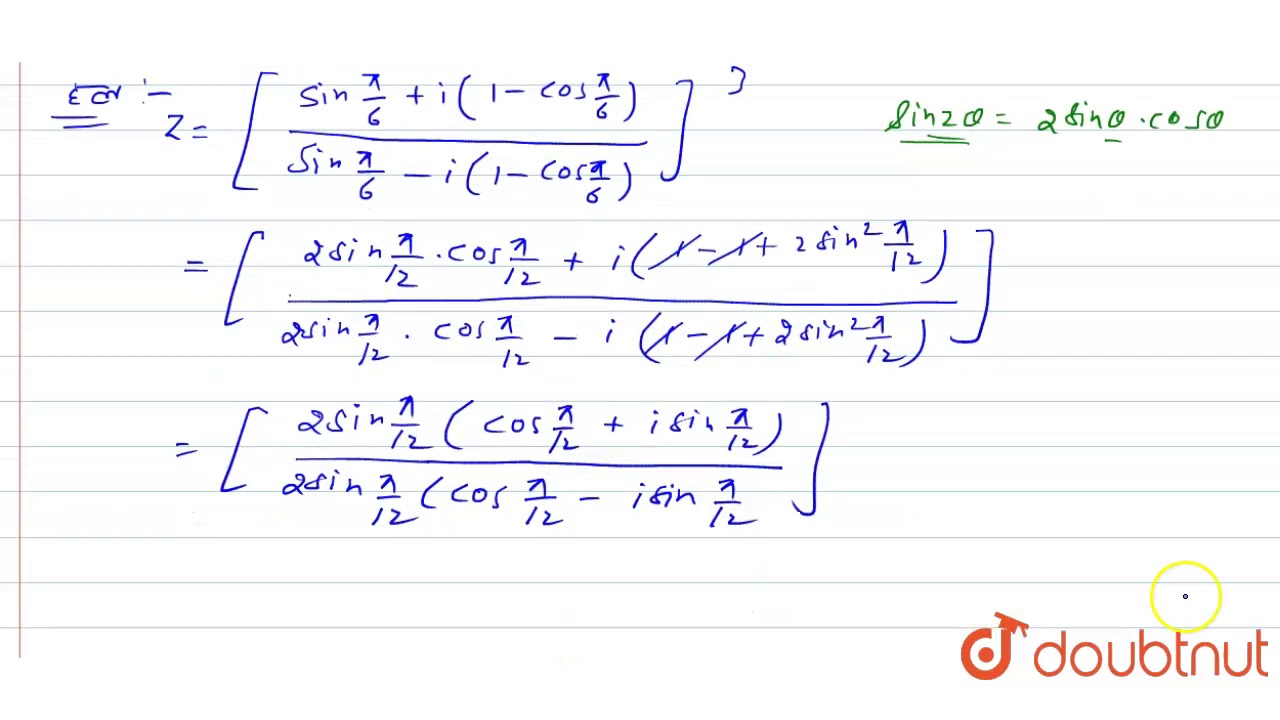 हल :-
Z = [ (sin π/6 + i(1 - cos π/6)) / (sin π/6 - i(1 - cos π/6)) ]³
sin2θ = 2sinθ · cosθ
= [ (2sin π/12 · cos π/12 + i(1 - 1 + 2sin² π/12)) / (2sin π/12 · cos π/12 - i(1 - 1 + 2sin² π/12)) ]
= [ (2sin π/12 (cos π/12 + i sin π/12)) / (2sin π/12 (cos π/12 - i sin π/12) ]
doubtnut